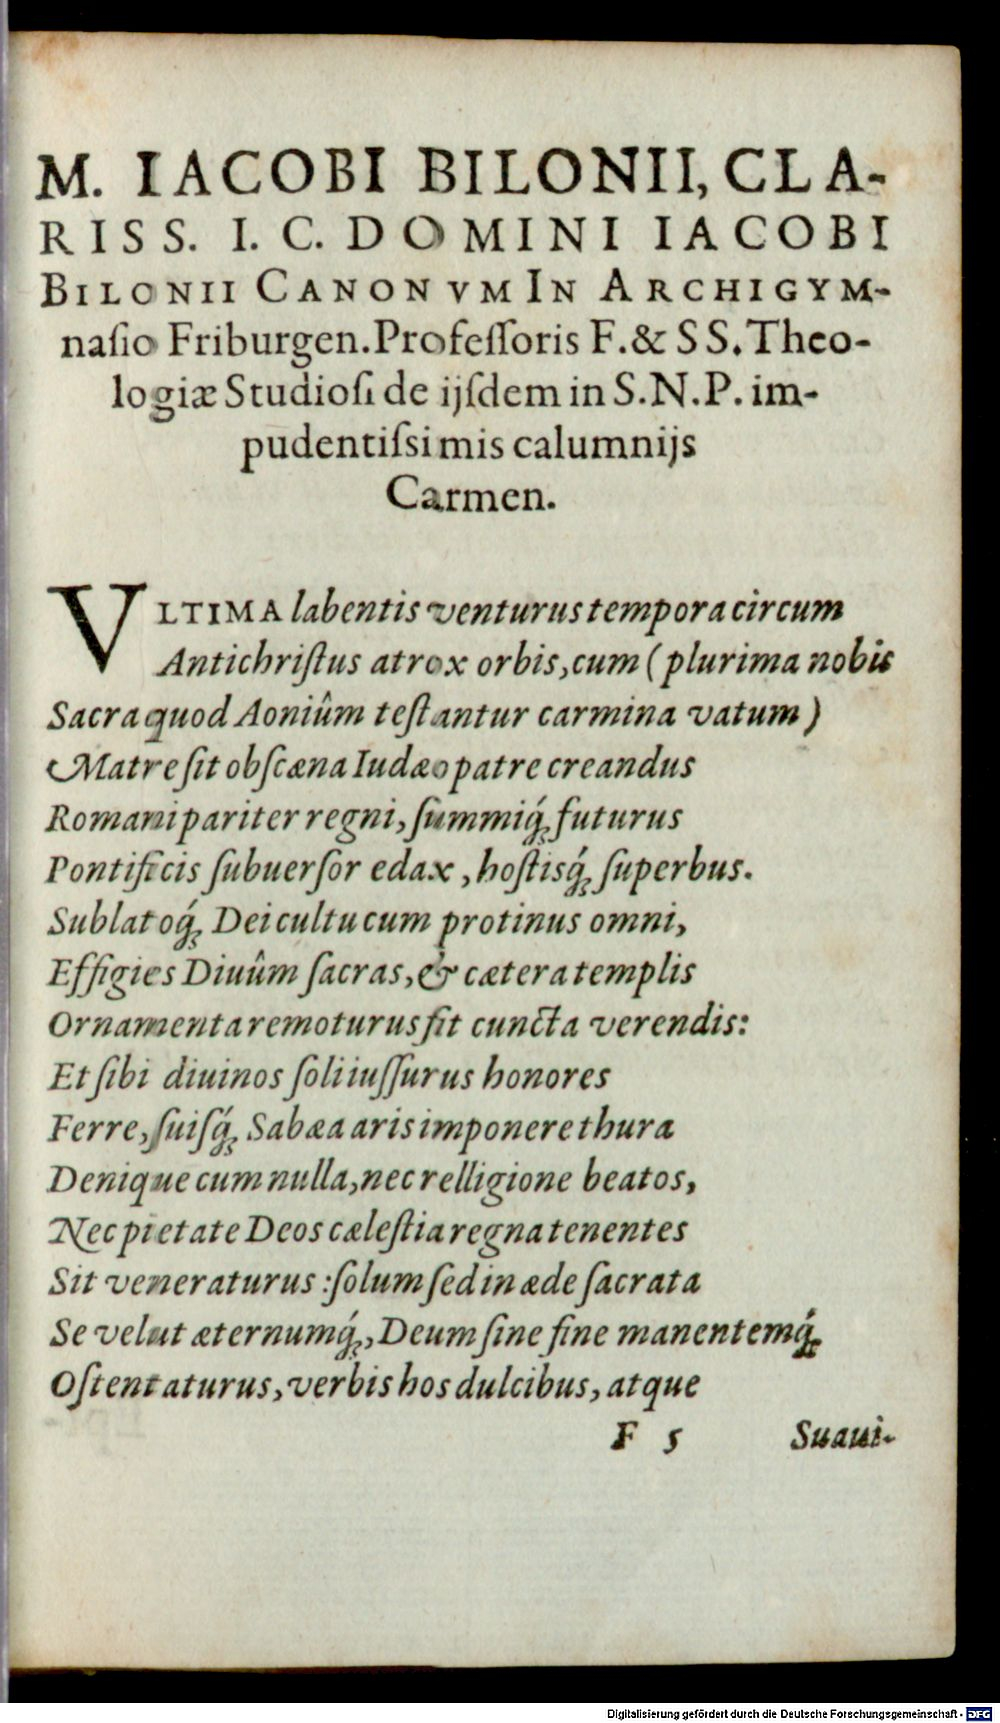 M. IACOBI BILONII, CLA-
RISS. I. C. DOMINI IACOBI
BILONII CANONVM IN ARCHIGYM-
naſio Friburgen. Profeſſoris F. & SS. Theo-
logiæ Studioſi de ijſdem in S. N. P. im-
pudentiſsimis calumnijs
Carmen.
VLTIMA labentis venturus tempora circum
Antichriſtus atrox orbis, cum (plurima nobis
Sacra quod Aoniûm teſtantur carmina vatum)
Matre ſit obſcæna Iudæo patre creandus
Romani pariter regni, ſummiq́ꝫ futurus
Pontificis ſubuerſor edax, hoſtisq́ꝫ ſuperbus.
Sublatoq́ꝫ Dei cultu cum protinus omni,
Effigies Diuûm ſacras, & cætera templis
Ornamenta remoturus ſit cuncta verendis:
Et ſibi diuinos ſoli iuſſurus honores
Ferre, ſuiſq́ꝫ Sabæa aris imponere thura
Denique cum nulla, nec relligione beatos,
Nec pietate Deos cæleſtia regna tenentes
Sit veneraturus: ſolum ſed in æde ſacrata
Se velut æternumq́ꝫ, Deum ſine fine manentemq́ꝫ
Oſtentaturus, verbis hos dulcibus, atque
F 5 Suaui-
Digitalisierung gefördert durch die Deutsche Forschungsgemeinschaft - DFG